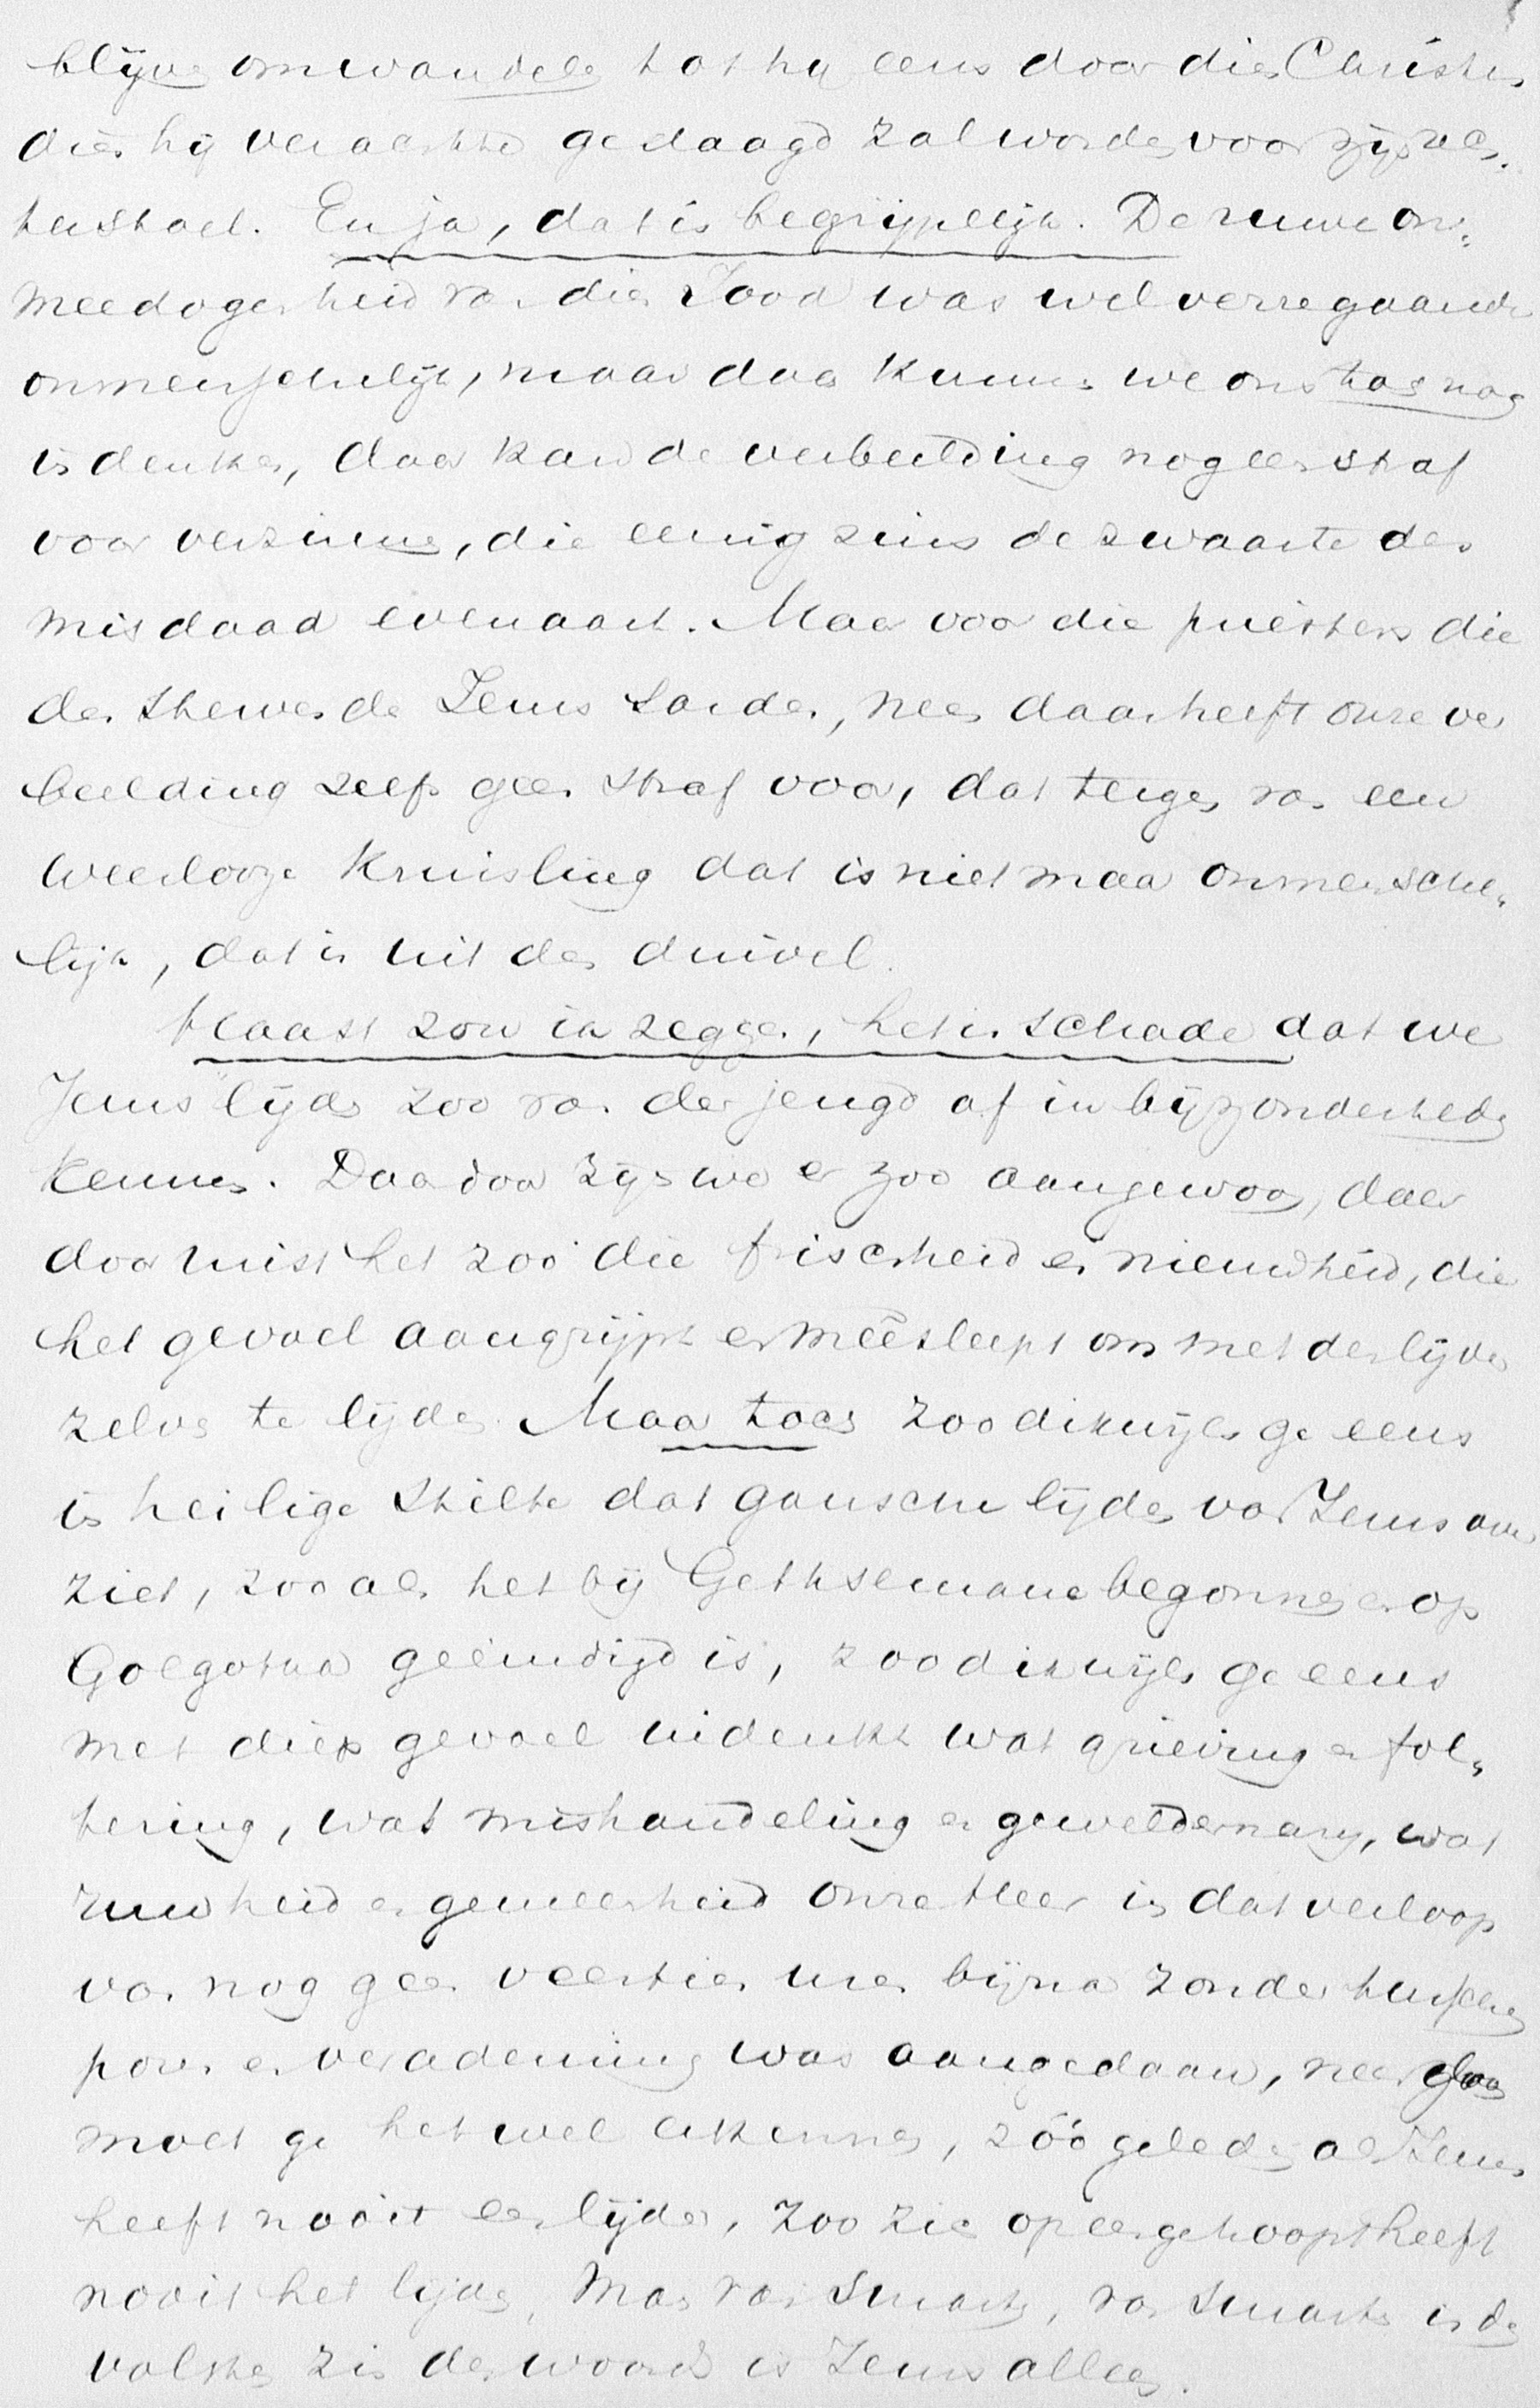 blijve omwandele tot hij eens door dien Christus
dien hij verachtte gedaagd zal worden voor zijn rech„
terstoel. En ja, dat is begrijpelijk. De ruwe on„
meedogenheid van dien Jood was wel verregaande
onmenschelijk, maar daar kunnen we ons toch nog
in denken, daar kan de verbeelding nog een straf
voor verzinnen, die eenigzins de zwaarte der
misdaad evenaart. Maar voor die priesters die
den stervende Jezus hoonden, neen daar heeft onze ver
beelding zelfs geen straf voor, dat tergen van een
weerlooze kruisling dat is niet maar onmensche„
lijk, dat is uit den duivel.
Haast zou ik zeggen, het is schade dat we
Jezus' lijden zoo van der jeugd af in bijzonderheden
kennen. Daardoor zijn we er zoo aangewoon, daar
door mist het zoo die frischheid en nieuwheid, die
het gevoel aangrijpt en meêsleept om met den lijder
zelve te lijden. Maar toch zoo dikwijls ge eens
in heilige stilte dat gansche lijden van Jezus over
ziet, zooals het bij Gethsemane begonnen en op
Golgotha geëindigd is, zoo dikwijls ge eens
met diep gevoel indenkt wat grieving en fol„
tering, wat mishandeling en geweldenarij, wat
ruwheid en gemeenheid onze Heer in dat verloop
van nog geen veertien uren bijna zonder tusschen
poos en verademing was aangedaan, neen dan
moet ge het wel erkennen, zóó geleden als Jezus
heeft nooit een lijder, zoo zich opeengehoopt heeft
nooit het lijden, Man van Smarte, van Smarte in den
volsten zin des woords is Jezus alleen.